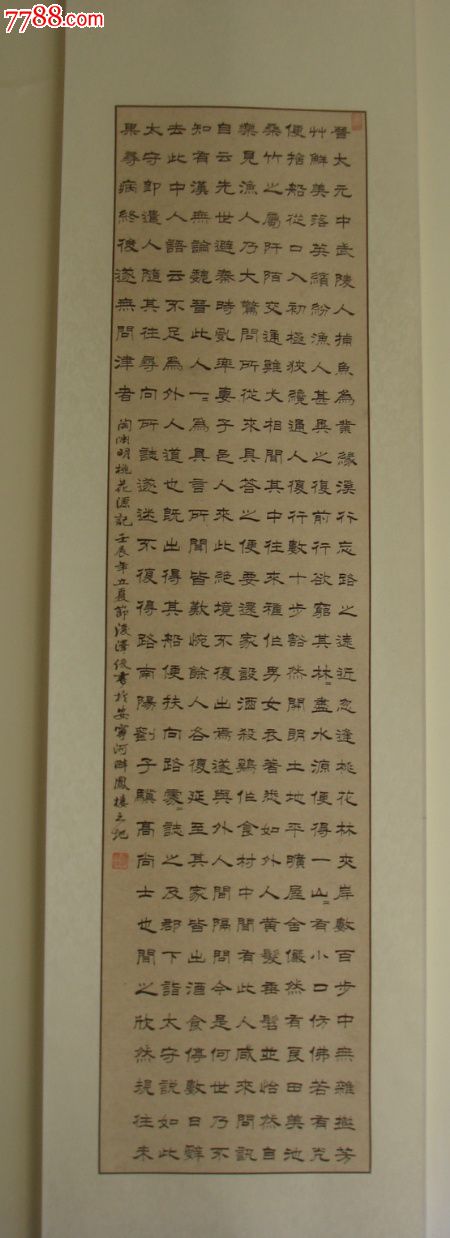 7788.com
晉太元中武陵人捕魚為業緣溪行忘路之遠近忽逢桃花林夾岸數百步中無雜樹芳
艸鮮美落英繽紛漁人甚異之復前行欲窮其林〻盡水源便得一山〻有小口仿佛若有光
便捨船從口入初極狹纔通人復行數十步豁然開朗土地平曠屋舍儼然有良田美池
桑竹之屬阡陌交通雞犬相聞其中往來種作男女衣著悉如外人黃髮垂髫並怡然自
樂見漁人乃大驚問所從來具答之便要還家設酒殺鷄作食村中聞有此人咸來問訊
自云先世避秦時亂率妻子邑人來此絕境不復出焉遂與外人間隔問今是何世乃不
知有漢無論魏晉此人一〻為具言所聞皆歎惋餘人各復延至其家皆出酒食停數日辭
去此中人語云不足為外人道也既出得其船便扶向路處〻誌之及郡下詣太守說如此
太守即遣人隨其往尋向所誌遂迷不復得路南陽劉子驥高尚士也聞之欣然規往未
果尋病終後遂無問津者 陶淵明桃花源記 壬辰年立夏節後澤俊書於安寧河畔鳳樓之